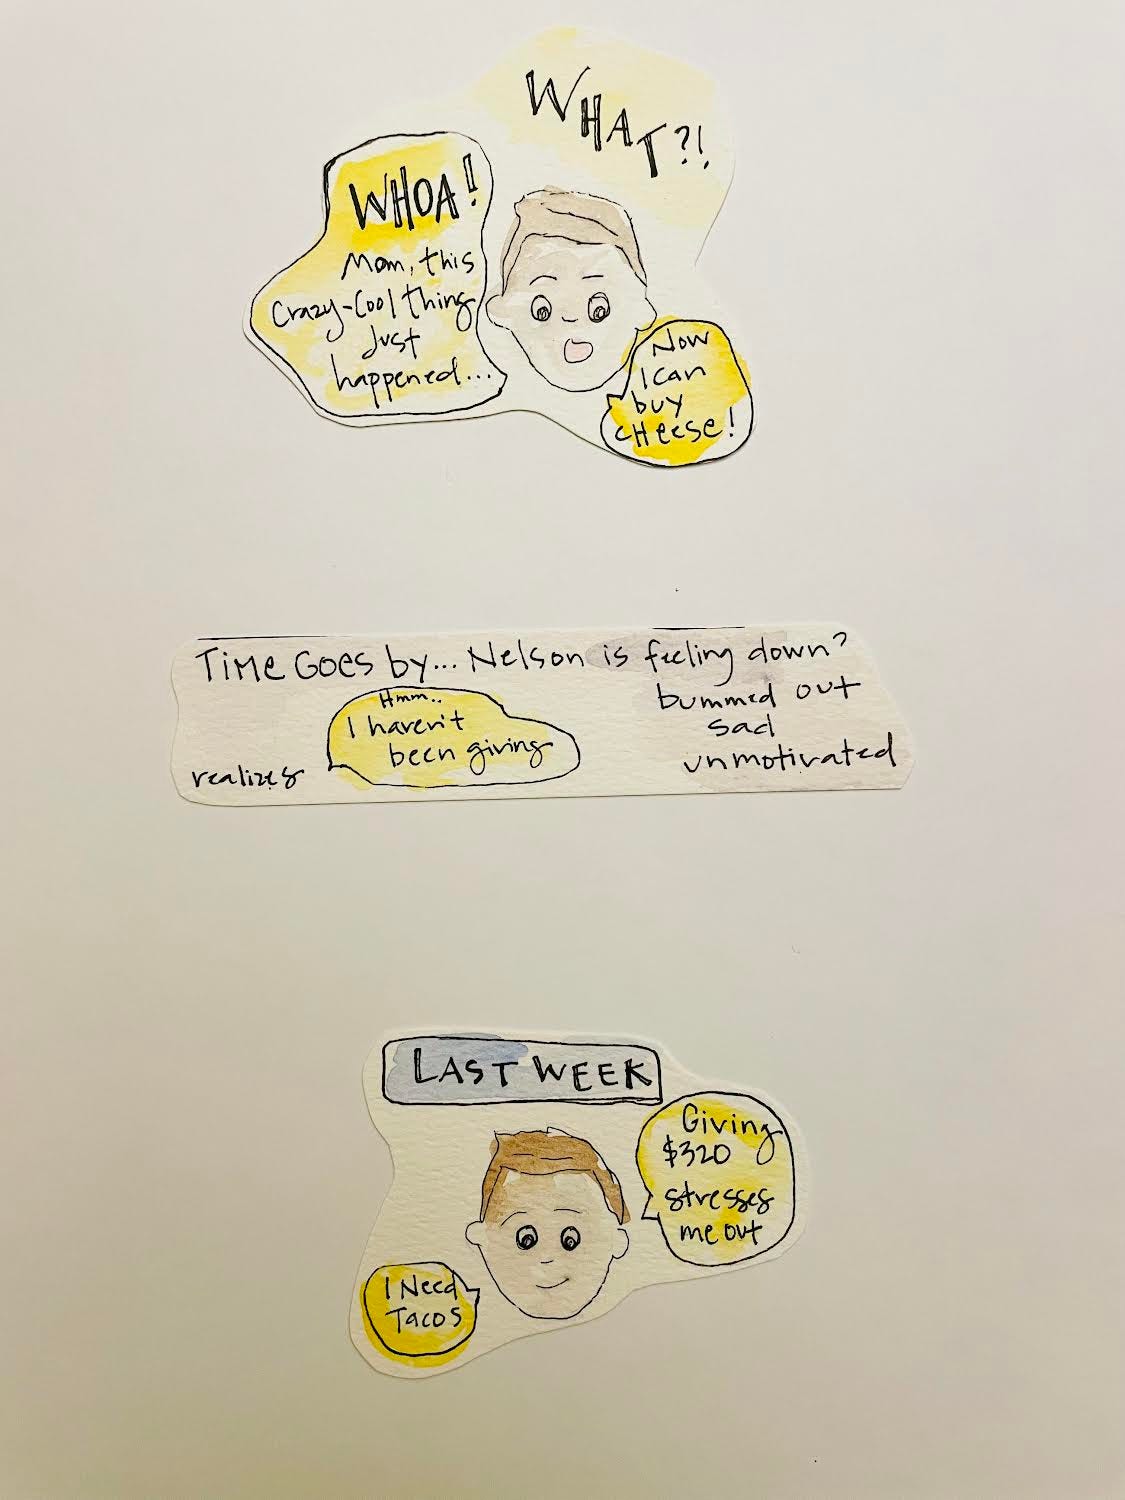 WHAT?!
WHOA!
Mom, this
crazy-cool thing
Just
happened...
Now
I can
buy
CHeese!
TiMe Goes by... Nelson is feeling down?
bummed out
sad
unmotivated
Hmm..
I haven't
been giving
realizes
LAST WEEK
Giving
$320
stresses
me out
I Need
Tacos